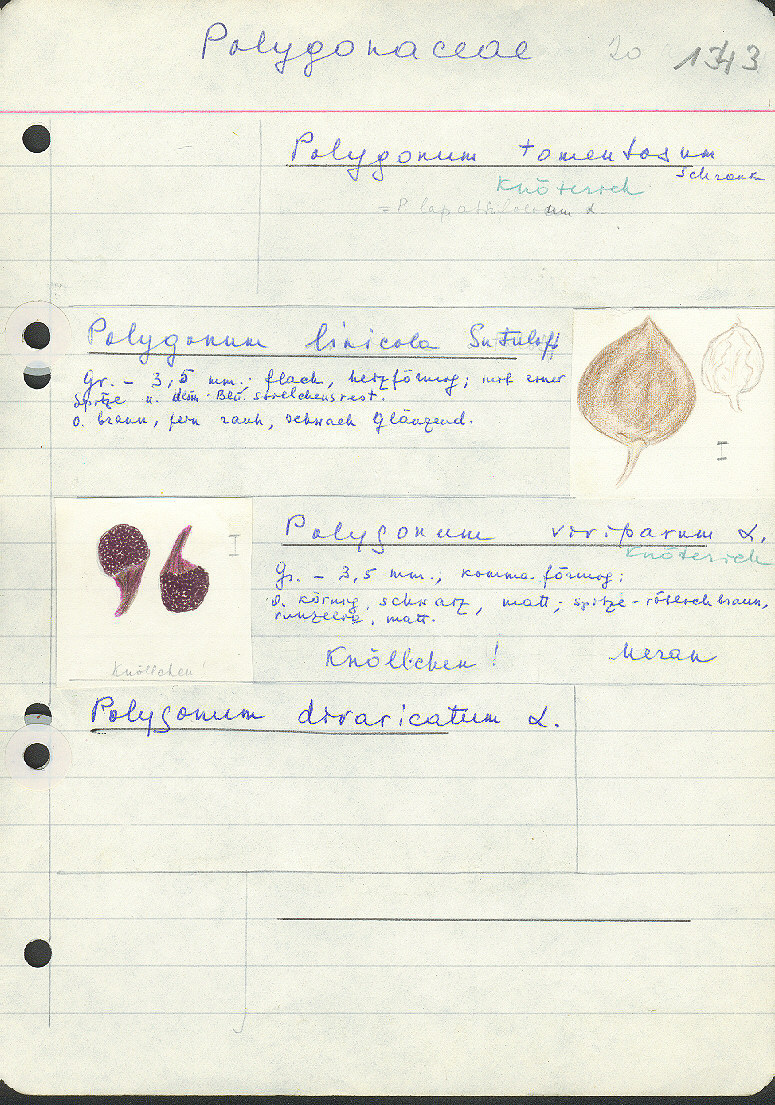 Polygonaceae 20 1343
Polygonum tomentosum
Schrank
Knöterich
= P. lapathifolium L.
Polygonum linicola Sutulof
Gr. – 3,5 mm.; flach, herzförmig; mit einer
Spitze u. dem Blü. stielchensrest.
o. braun, fein rauh, schwach Glänzend.
Polygonum viviparum L.
Knöterich
Gr. – 3,5 mm.; komma förmig;
o. körnig, schwarz, matt; spitze – rötlichbraun,
runzelig, matt.
Knöllchen! Meran
Knöllchen!
Polygonum divaricatum L.